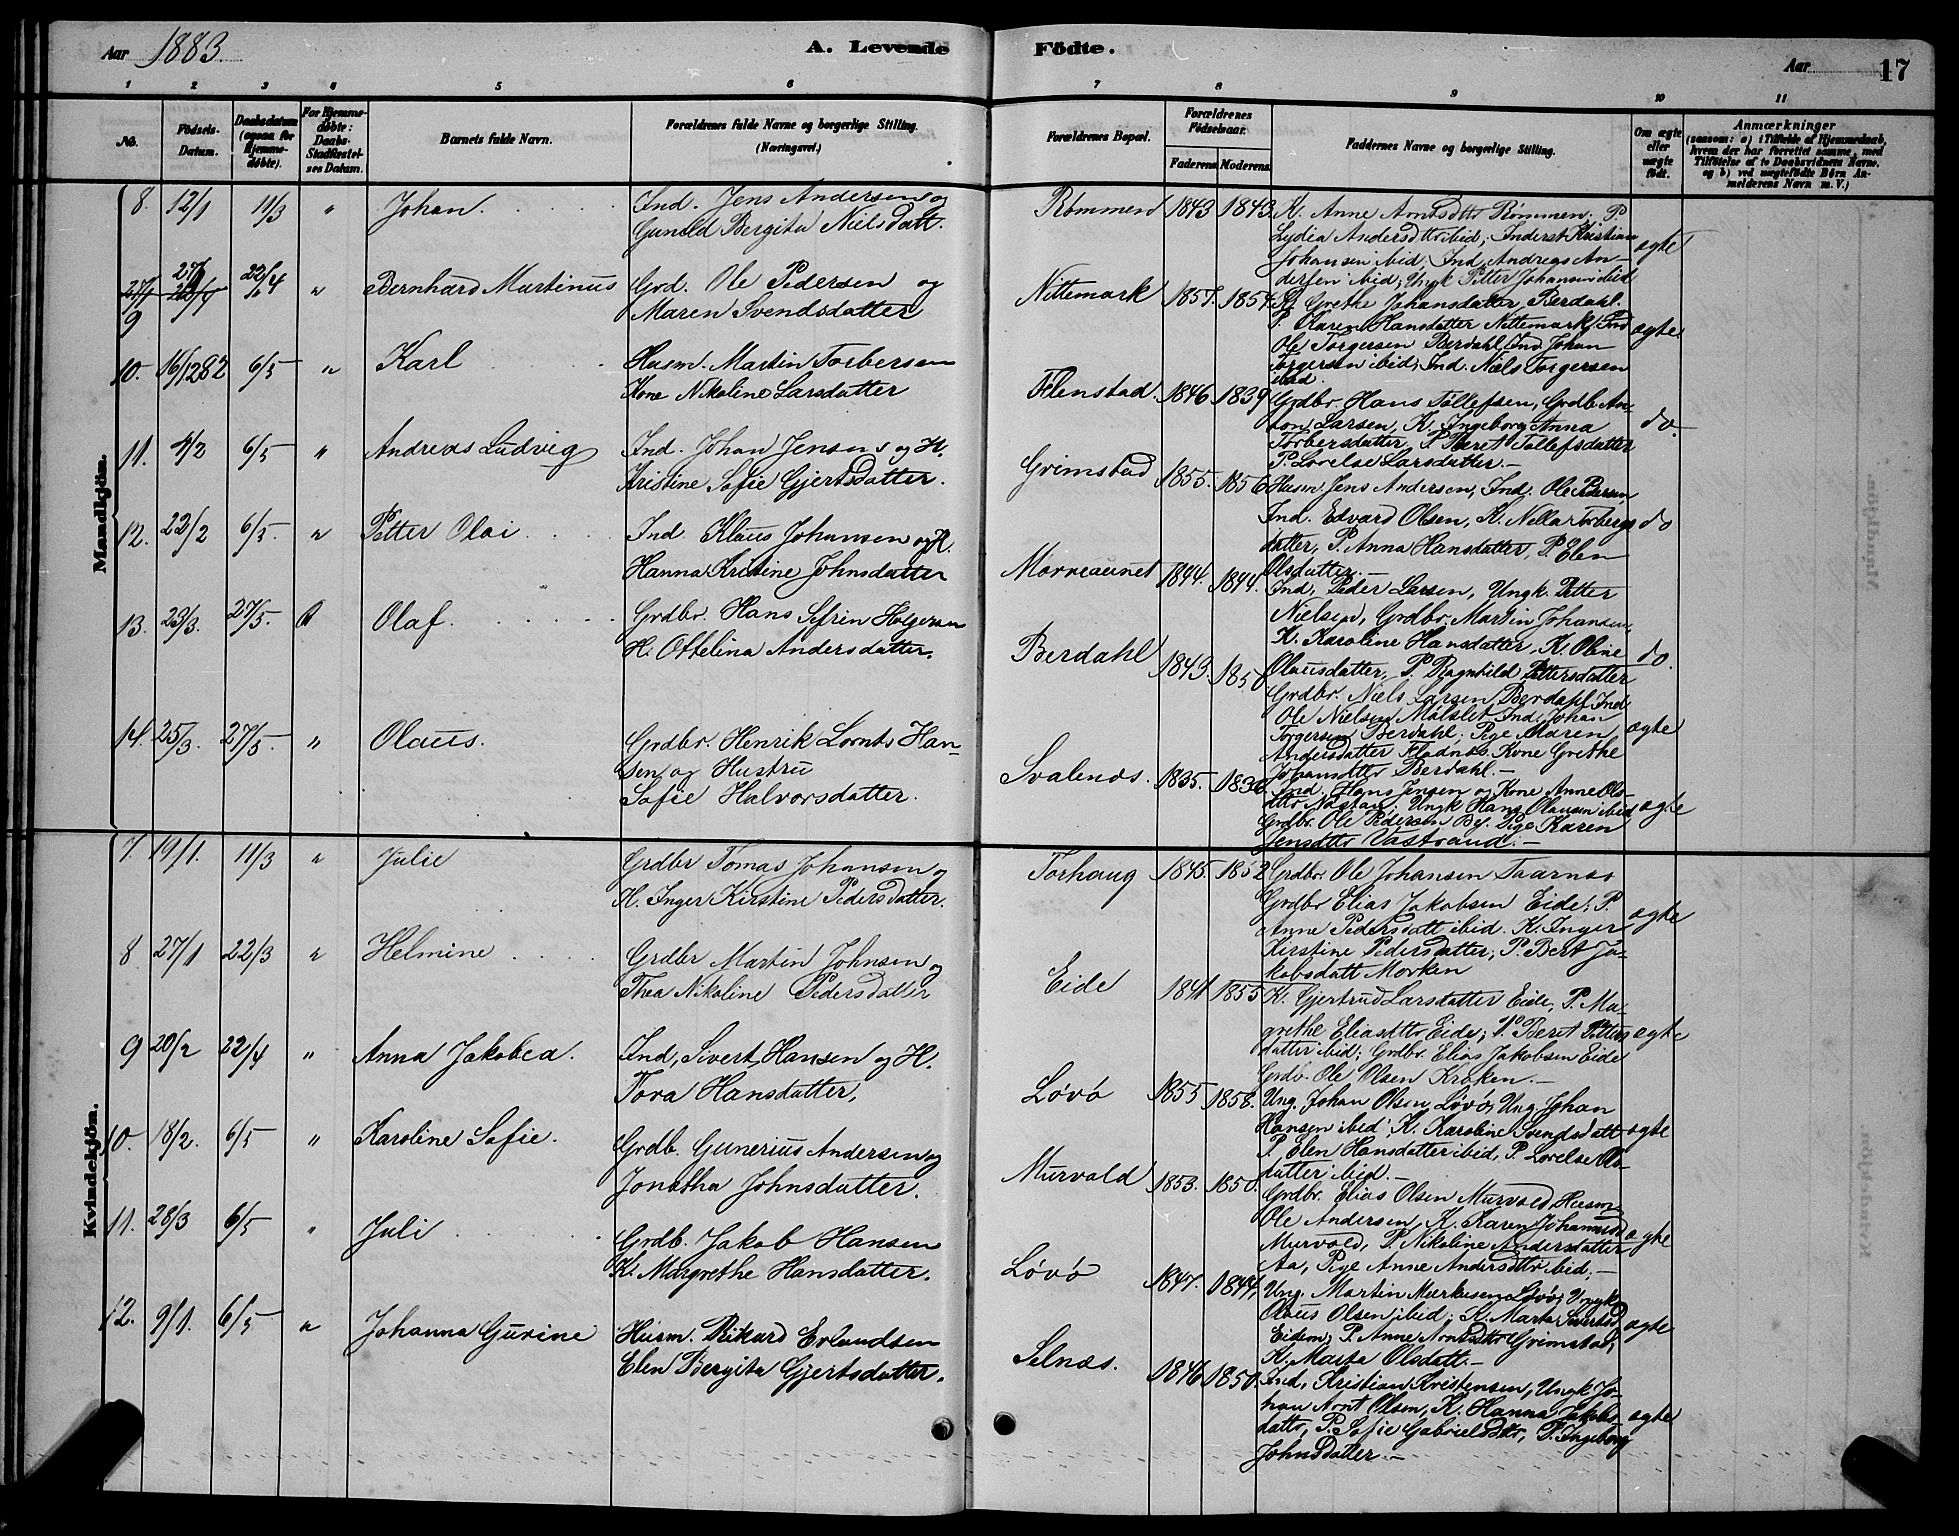 Aar 1883.
A. Levende
Födte.
Aar
17
1 2 3 4 5 6
7 8 9 10 11
No.
Födsels-
Datum.
Daabsdatum
(ogsaa for
Hjemme-
döbte).
For Hjemme-
döbte:
Daabs-
Stadfæstel-
ses Datum.
Barnets fulde Navn.
Forældrenes fulde Navne og borgerlige Stilling.
(Næringsvei.)
Forældrenes Bopæl.
Forældrenes
Födselsaar.
Faderens. Moderens.
Faddernes Navne og borgerlige Stilling.
Om ægte
eller
uægte
födt.
Anmærkninger
(saasom: a) i Tilfælde af Hjemmedaab,
hvem der har forrettet samme, med
Tilföielse af to Daabsvidners Navne,
og b) ved uægtefödte Börn An-
melderens Navn m. V.)
Mandkjön.
8. 12/1 11/3 " Johan.
Ind. Jens Andersen og
Gunild Bergita Nielsdatt.
Rømmen 1843 1843
K. Anne Arntsdttr Rømmen; P.
Lydia Andersdttr ibid; Inderst Kristian
Johansen ibid. Ind. Andreas An-
dersen ibid; Ungk Petter Johansen ibid
ægte
9 27/1 22/4 " Bernhard Martinus
Grd. Ole Pedersen og
Maren Svendsdatter
Nittemark 1857. 1854.
K. Grethe Johansdatter Berdahl.
P. Karen Hansdatter Nittemark, Ind
Ole Torgersen Berdahl, Ind. Johan
Torgersen ibid; Ind. Niels Torgersen
ibid.
ægte
10. 16/12 82 6/5 " Karl
Husm. Martin Torbersen
Kone Nikoline Larsdatter
Flenstad. 1846 1839
Grdbr. Hans Tollefsen, Grdb. An-
ton Larsen, K. Ingeborg Anna
Torbersdatter, P. Beret Tollefsdatter
P. Lovelse Larsdatter.-
do.
11. 4/2 6/5 " Andreas Ludvig
Ind. Johan Jensens og H.
Kristine Sofie Gjertsdatter.
Grimstad 1855. 1856
Husm. Jens Andersen, Ind. Ole Pedersen
Ind. Edvard Olsen, K. Nella Torbergs
datter, P. Anna Hansdatter, P. Elen
Olsdatter.-
do
12. 22/2 6/5. " Petter Olai
Ind. Klaus Johansen og H.
Hanna Kristine Johnsdatter
1844. 1844.
Ind. Peder Larsen, Ungk. Petter
Nielsen, Grdbr. Martin Johansen,
K. Karoline Hansdatter, K. Oline
Olausdatter, P. Ragnhild Pettersdatter
do.
13. 23/3. 27/5. Olaf.
Grdbr. Hans Sefrin
H. Ottelina Andersdatter.
Berdahl 1843. 1850
Grdbr. Niels Larsen Berdahl, Ind.
Ole Nielsen Målslet, Ind. Johan
Torgersen Berdahl. Pige Maren
Andersdatter Fladnes. Kone Grethe
Johansdttr Berdahl.-
ægte
14. 25/3. 27/5. " Olaus.
Grdbr. Henrik Lornts Han-
sen og Hustru
Sofie Halvorsdatter.
Svalenes. 1835. 1836
Ind. Hans Jensen og Kone Anne Ols-
dttr; Ungk Hans Olausen ibid
Grdbr. Ole Pedersen By. Pige Karen
Jensdttr Vastrand.-
ægte
Kvindekjön.
7. 19/1. 11/3 " Julie
Grdbr Tomas Johansen og
H. Inger Kirstine Pedersdatter.
Torhaug 1845. 1852
Grdbr Ole Johansen Taarnes
Grdbr Elias Jakobsen Eide; P.
Anne Pedersdatt ibid. K. Inger
Kirstine Pedersdatter, P. Beret Ja-
kobsdatt Morken
ægte
8. 27/1 22/3 " Helmine
Grdbr Martin Johnsen og
Thea Nikoline Pedersdatter
Eide 1841 1855
K. Gjertrud Larsdatter Eide, P. Ma-
grethe Eliasdttr Eide; P. Beret Petters
datter ibid; Grdbr. Elias Jakobsen Eide
Grdb. Ole Olsen Kroken.-
ægte
9 20/2 22/4 " Anna Jakobea.
Ind, Sivert Hansen og H.
Tora Hansdatter,
Løvö 1855 1858.
Ung. Johan Olsen Løvö, Ung. Johan
Hansen ibid; K. Karoline Svendsdatt
P. Elen Hansdatter ibid, P. Lovelse Ols-
datter ibid.-
ægte
10. 18/2. 6/5 " Karoline Sofie.
Grdb. Gunerius Andersen og
Jonetha Johnsdatter.
Murvald 1853. 1850.
Grdbr. Elias Olsen Murvald, Husm.
Ole Andersen, K. Karen Johannesd
Murvold, P. Nikoline Andersdatter
Aa, Pige Anne Andersdttr ibid.-
ægte
11. 28/3 6/5 " Juli
Grdb. Jakob Hansen
K. Margrethe Hansdatter.
Løvö 1847. 1844.
Ung. Martin Markusen Løvö; Ungk
Olaus Olsen ibid; K. Marta Sivertsd
Eidem; P. Anne Arntsdttr Grimstad;
K. Marta Olsdatt.-
ægte
12. 9/1. 6/5 " Johanna Gurine
Husm. Rikard Erlandsen
Elen Bergita Gjertsdatter.
Selnæs. 1846 1850.
Ind. Kristian Kristensen, Ungk Jo-
han Arnt Olsen, K. Hanna Jakobs
dattr, P. Sofie Gabrielsdttr, P. Ingeborg
Johnsdatter.-
ægte